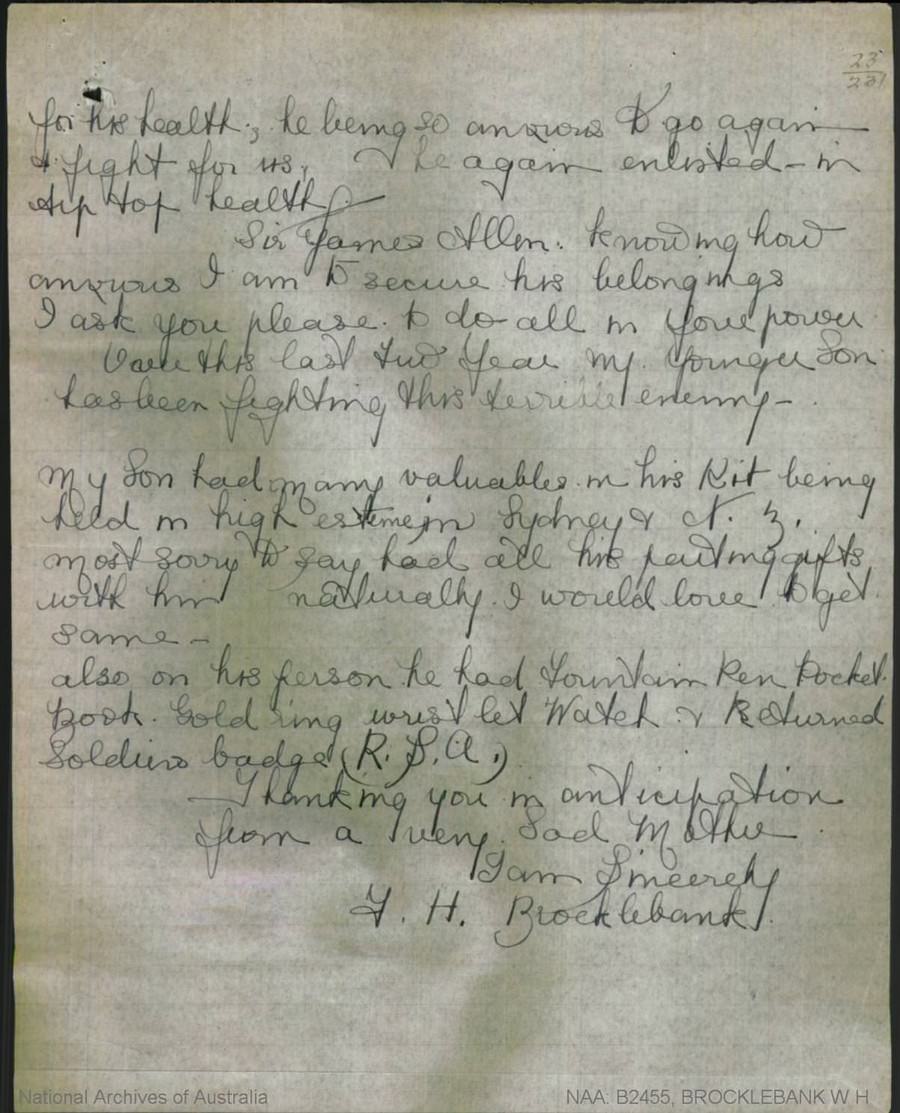 23
231
for his health; he being so anxious to go again
& fight for us, he again enlisted - in
tip top health.
Sir James Allen. knowing how
anxious I am to secure his belongings
I ask you please. to do all in your power
Over this last two year my Younger Son
has been fighting this terrible enemy -
my Son had many valuables in his Kit being
held in high esteme in Sydney & N. Z.
most sorry to say had all his parting gifts
with him naturally. I would love to get
same -
also on his person he had Fountain Pen Pocket.
Book. Gold ring wrist let Watch & Returned
Soldiers badge (R. S. A.)
Thanking you in anticipation
from a very Sad Mother
I am Sincerely
F. H. Brocklebank.
National Archives of Australia
NAA: B2455, BROCKLEBANK W H